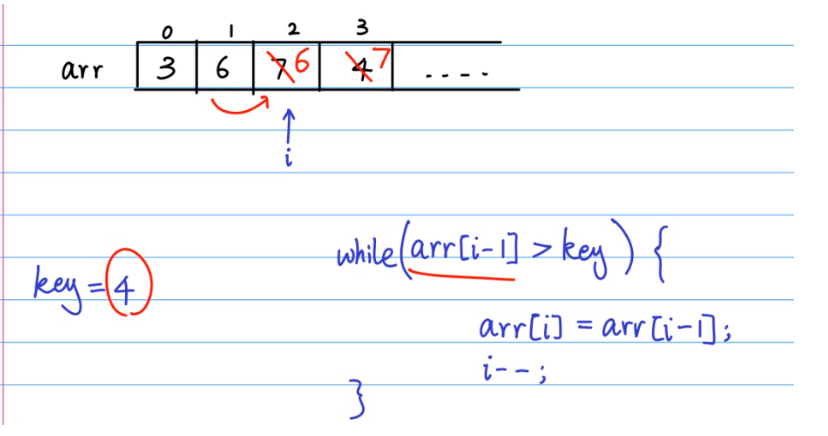 0 1 2 3
arr 3 6 7 6 4 7 ....
i
while(arr[i-1] > key) {
key = 4
arr[i] = arr[i-1];
i--;
}